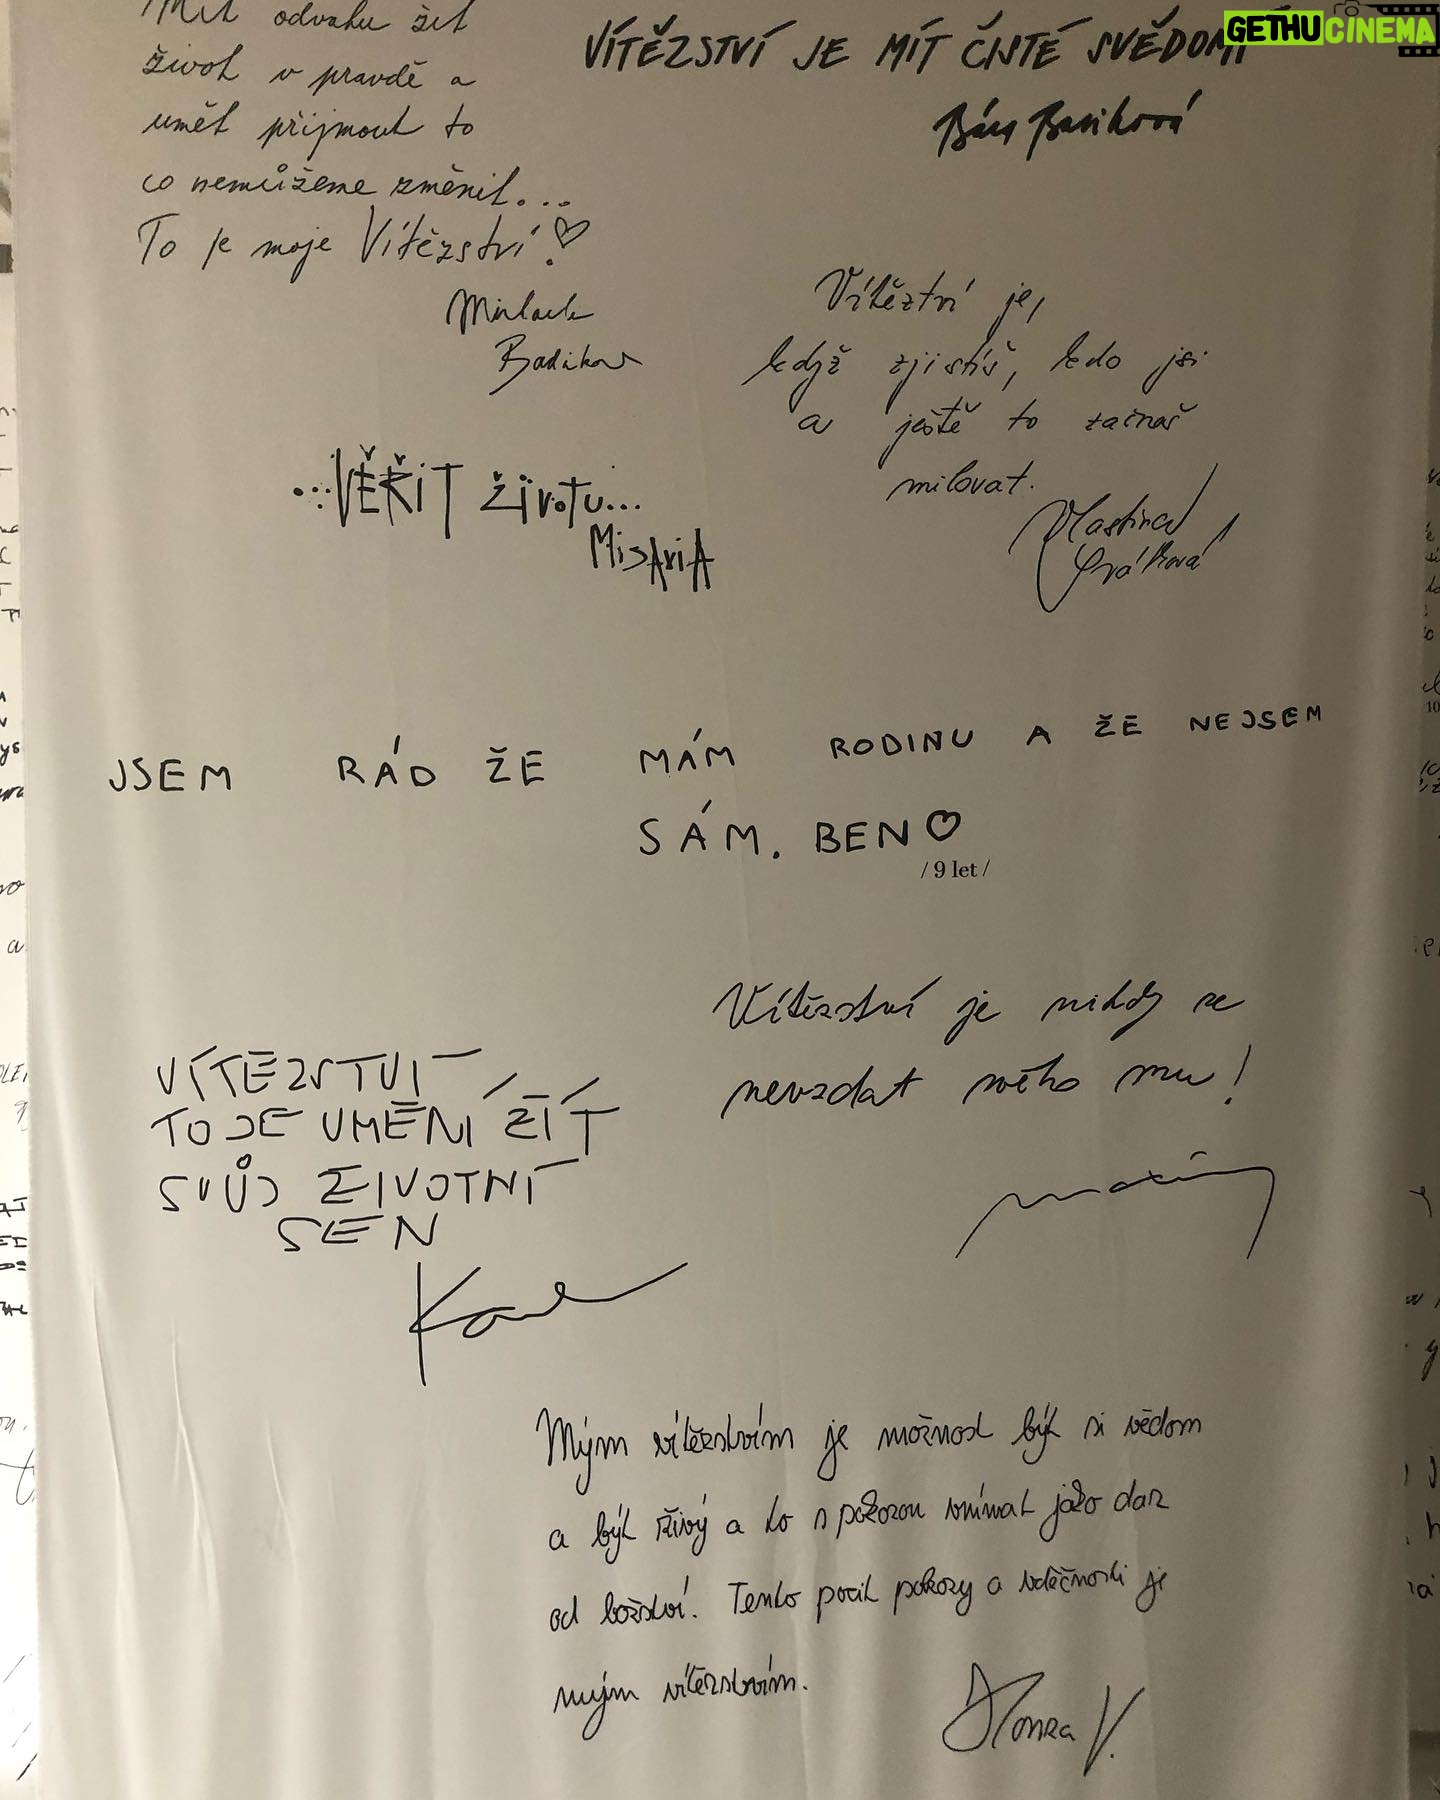 Mít odvahu žít
život v pravdě a
umět přijmout to
co nemůžeme změnit...
To je moje Vítězství!
VÍTĚZSTVÍ JE MÍT ČISTÉ SVĚDOMÍ
Bára Basiková
GETHUCINEMA
Vítěztví je,
když zjistíš, kdo jsi
a ještě to začnaš
milovat.
Vlastina
...VĚŘIT ŽIVOTU...
MisAriA
JSEM RÁD ŽE MÁM RODINU A ŽE NEJSEM
SÁM. BEN
/ 9 let /
Vítězství je nikdy se
nevzdat svého snu!
VÍTĚZSTVÍ
TO JE UMĚNÍ ŽÍT
SVŮJ ŽIVOTNÍ
SEN
Mým vítězstvím je možnost být si vědom
a být živý a to s pokorou vnímat jako dar
od božství. Tento pocit pokory a vděčnosti je
mým vítězstvím.
Honza V.